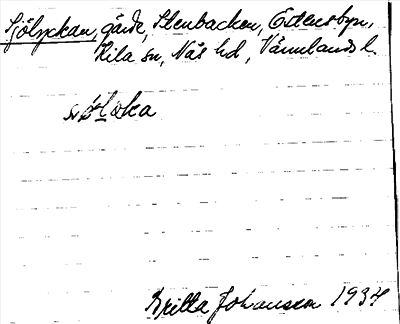 Sjölyckan, gärde, Stenbacken, Edensbyn,
Kila sn, Näs hd, Värmlands l.
Britta Johansson 1934